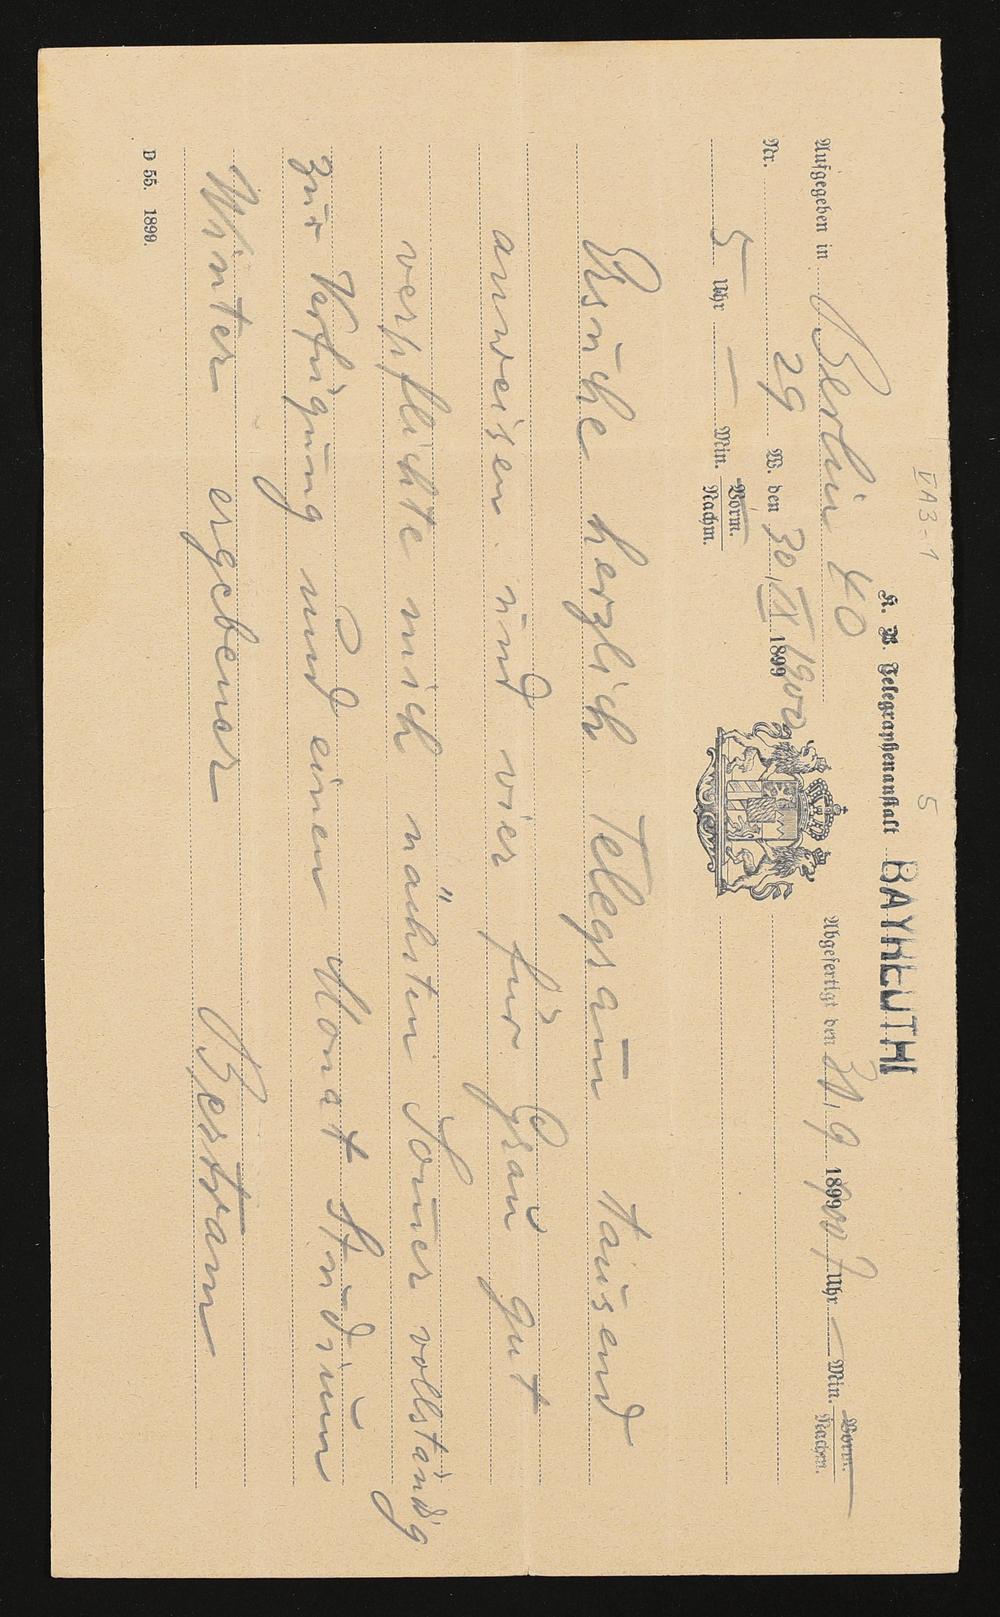 V A 3 - 1
5
K. B. Telegraphenanstalt BAYREUTH
Aufgegeben in Berlin 40
Nr. 29 W. den 30. IX. 1899 1900
5 Uhr — Min. Vorm. Nachm.
Abgefertigt den 30. 9. 1899 900 7 Uhr — Min. Vorm. Nachm.
Ersuche herzlich Telegram tausend
anweisen und vier für Grau gut
verpflichte mich nächsten Somer vollständig
zur Verfügung und einen Monat Studium
Winter ergebener Bertram
D 55. 1899.